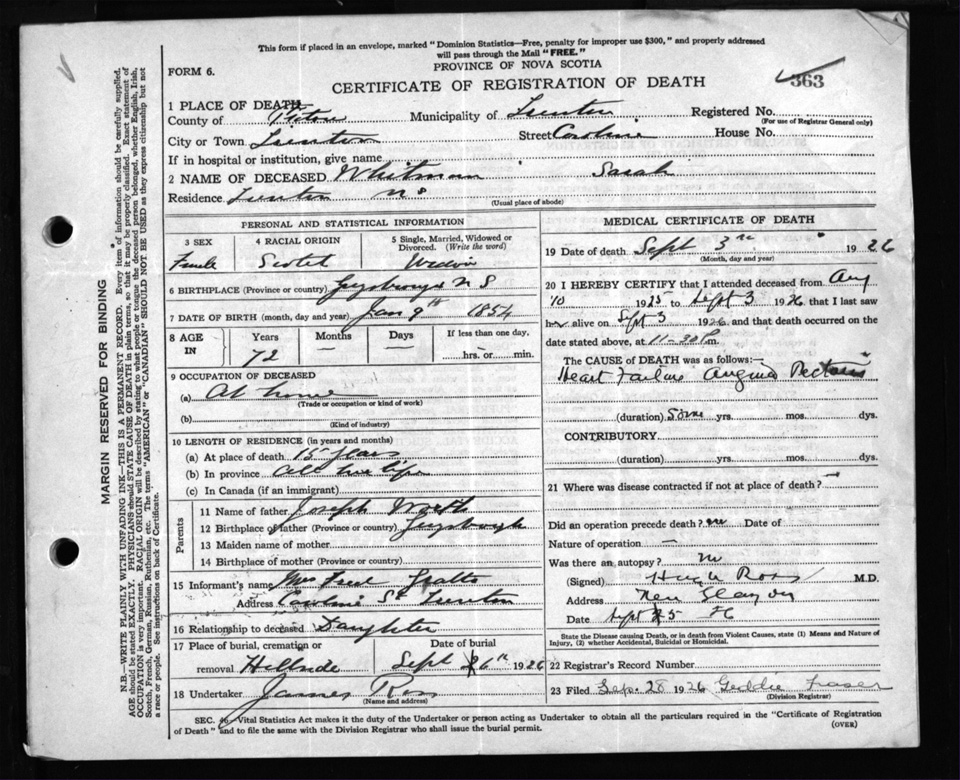 This form if placed in an envelope, marked "Dominion Statistics—Free, penalty for improper use $300," and properly addressed
will pass through the Mail "FREE."
PROVINCE OF NOVA SCOTIA
FORM 6.
CERTIFICATE OF REGISTRATION OF DEATH
363
1 PLACE OF DEATH
County of Pictou Municipality of Trenton Registered No.
(For use of Registrar General only)
City or Town Trenton Street House No.
If in hospital or institution, give name
2 NAME OF DECEASED Whitman Sarah
Residence Trenton NS
(Usual place of abode)
PERSONAL AND STATISTICAL INFORMATION
3 SEX 4 RACIAL ORIGIN 5 Single, Married, Widowed or Divorced. (Write the word)
Female Scotch Widow
6 BIRTHPLACE (Province or country) Guysboro NS
7 DATE OF BIRTH (month, day and year) Jan 9th 1854
8 AGE IN Years Months Days If less than one day,
72 — — hrs. or min.
9 OCCUPATION OF DECEASED
(a) At home
(Trade or occupation or kind of work)
(b)
(Kind of industry)
10 LENGTH OF RESIDENCE (in years and months)
(a) At place of death 15 years
(b) In province All her life
(c) In Canada (if an immigrant)
Parents
11 Name of father Joseph
12 Birthplace of father (Province or country) Guysborough
13 Maiden name of mother
14 Birthplace of mother (Province or country)
15 Informant's name Mrs Fred
Address St Trenton
16 Relationship to deceased Daughter
17 Place of burial, cremation or Date of burial
removal Hillside Sept 6th 1926
18 Undertaker James Ross
(Name and address)
MEDICAL CERTIFICATE OF DEATH
19 Date of death Sept 3rd 1926
(Month, day and year)
20 I HEREBY CERTIFY that I attended deceased from Aug
10 1925 to Sept 3 1926 that I last saw
her alive on Sept 3 1926 and that death occurred on the
date stated above, at 11-30 P.m.
The CAUSE OF DEATH was as follows:—
Heart Failure Angina Pectoris
(duration) some yrs. mos. dys.
CONTRIBUTORY.
(duration) yrs. mos. dys.
21 Where was disease contracted if not at place of death? —
Did an operation precede death? no Date of
Nature of operation —
Was there an autopsy? no
(Signed) Hugh Ross M.D.
Address New Glasgow
Date Sept 5 26
State the Disease causing Death, or in death from Violent Causes, state (1) Means and Nature of
Injury, and (2) whether Accidental, Suicidal or Homicidal.
22 Registrar's Record Number
23 Filed Sep. 28 1926 Geddie Fraser
(Division Registrar)
SEC. Vital Statistics Act makes it the duty of the Undertaker or person acting as Undertaker to obtain all the particulars required in the "Certificate of Registration
of Death" and to file the same with the Division Registrar who shall issue the burial permit.
(OVER)
MARGIN RESERVED FOR BINDING
N.B.—WRITE PLAINLY WITH UNFADING INK—THIS IS A PERMANENT RECORD. Every item of information should be carefully supplied.
AGE should be stated EXACTLY. PHYSICIANS should STATE CAUSE OF DEATH in plain terms, so that it may be properly classified. Exact statement of
OCCUPATION is very important. RACIAL ORIGIN will be described by stating to what people or tongue the deceased person belonged, whether English, Irish,
Scotch, French, German, Russian, Ruthenian, etc. The terms "AMERICAN" or "CANADIAN" SHOULD NOT BE USED as they express citizenship but not
a race or people. See instructions on back of Certificate.